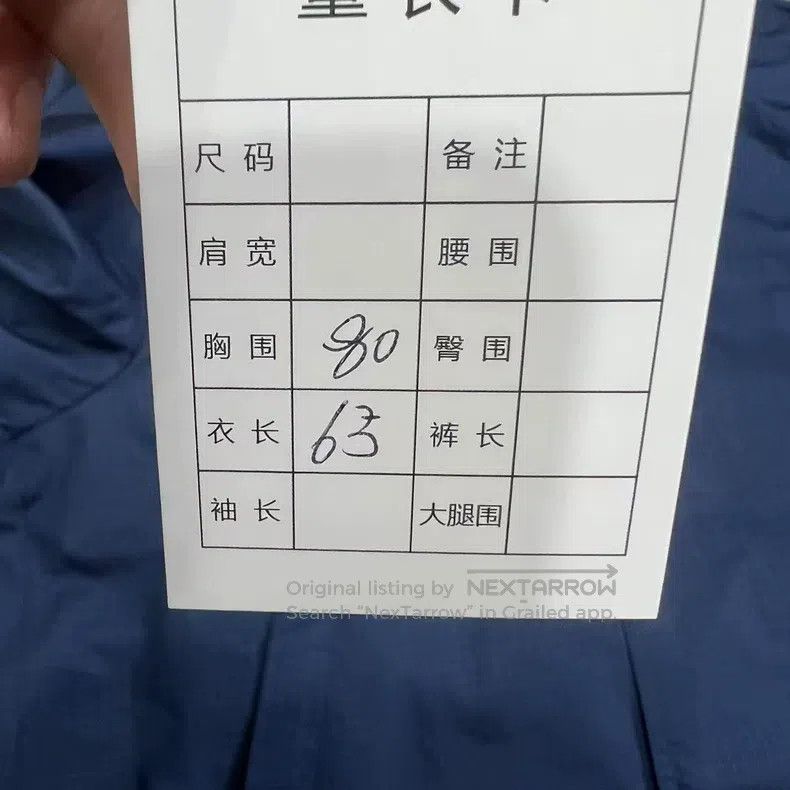 尺码 备注
肩宽 腰围
胸围 80 臀围
衣长 63 裤长
袖长 大腿围
Original listing by NEXTARROW
Search "NexTarrow" in Grailed app.